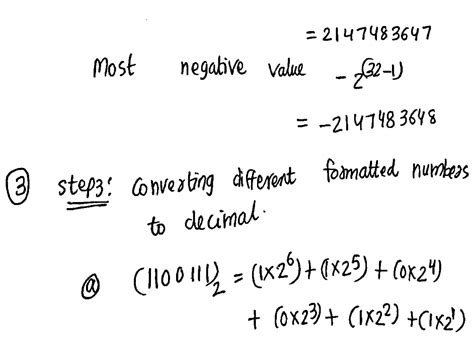 = 2147483647
Most negative value -2^(32-1)
= -2147483648
③ step3: Converting different formatted numbers
to decimal.
ⓐ (1100111)₂ = (1x2⁶)+(1x2⁵) + (0x2⁴)
+ (0x2³) + (1x2²) +(1x2¹)